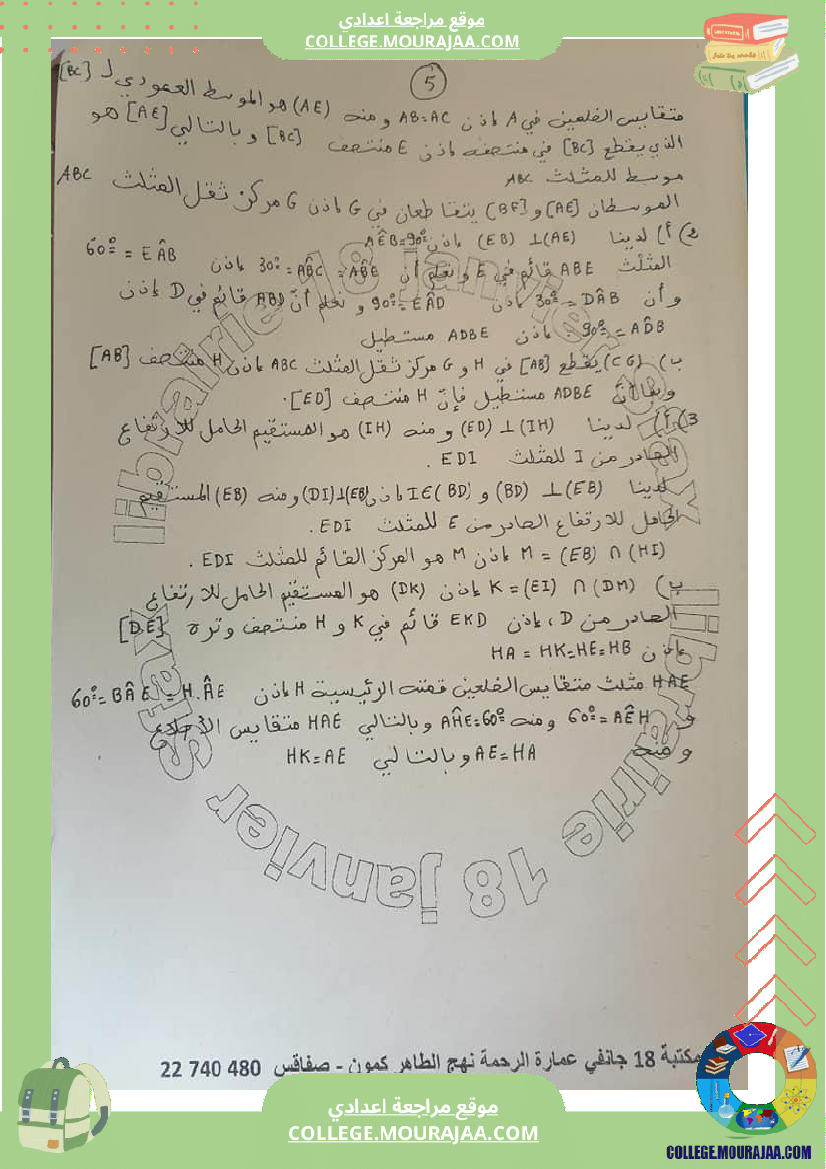 موقع مراجعة اعدادي
COLLEGE.MOURAJAA.COM
5
متقايس الضلعين في A إذن AB=AC ومنه (AE) هو الموسط العمودي لـ [BC]
الذي يقطع [BC] في منتصفه إذن E منتصف [BC] وبالتالي [AE] هو
موسط للمثلث ABC
الموسطان [AE] و [BF] يتقاطعان في G إذن G مركز ثقل المثلث ABC
2) أ) لدينا (AE) ⊥ (EB) إذن AÊB=90°
المثلث ABE قائم في E ونعلم أن AB̂E = AB̂C = 30° إذن EÂB = 60°
وأن DÂB = 30° إذن EÂD = 90° ونعلم أنّ ABD قائم في D إذن
AD̂B = 90° إذن ADBE مستطيل
ب) (CG) يقطع [AB] في H و G مركز ثقل المثلث ABC إذن H منتصف [AB]
وبما أنّ ADBE مستطيل فإنّ H منتصف [ED].
3) أ) لدينا (IH) ⊥ (ED) ومنه (IH) هو المستقيم الحامل للارتفاع
الصادر من I للمثلث EDI .
لدينا (EB) ⊥ (BD) و I∈(BD) إذن (EB)⊥(DI) ومنه (EB) المستقيم
الحامل للارتفاع الصادر من E للمثلث EDI .
(HI) ∩ (EB) = M إذن M هو المركز القائم للمثلث EDI .
ب) (DM) ∩ (EI) = K إذن (DK) هو المستقيم الحامل للارتفاع
الصادر من D ، إذن EKD قائم في K و H منتصف وتره [DE]
إذن HA = HK=HE=HB
HAE مثلث متقايس الضلعين قمته الرئيسية H إذن HÂE = BÂE = 60°
و AÊH = 60° ومنه AĤE=60° وبالتالي HAE متقايس الأضلاع
ومنه AE=HA وبالتالي HK=AE
librairie 18 janvier Sfax
librairie 18 janvier Sfax
مكتبة 18 جانفي عمارة الرحمة نهج الطاهر كمون - صفاقس 480 740 22
موقع مراجعة اعدادي
COLLEGE.MOURAJAA.COM
COLLEGE.MOURAJAA.COM